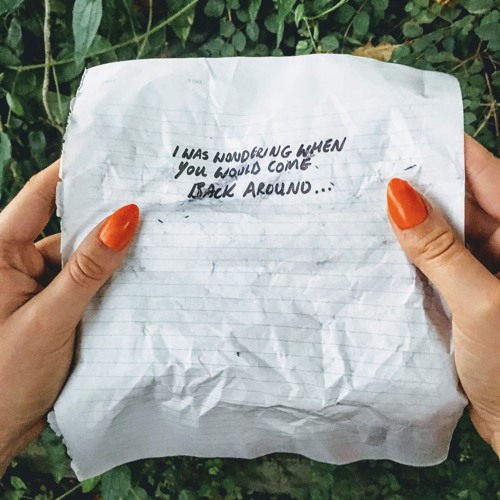 I WAS WONDERING WHEN
YOU WOULD COME
BACK AROUND...